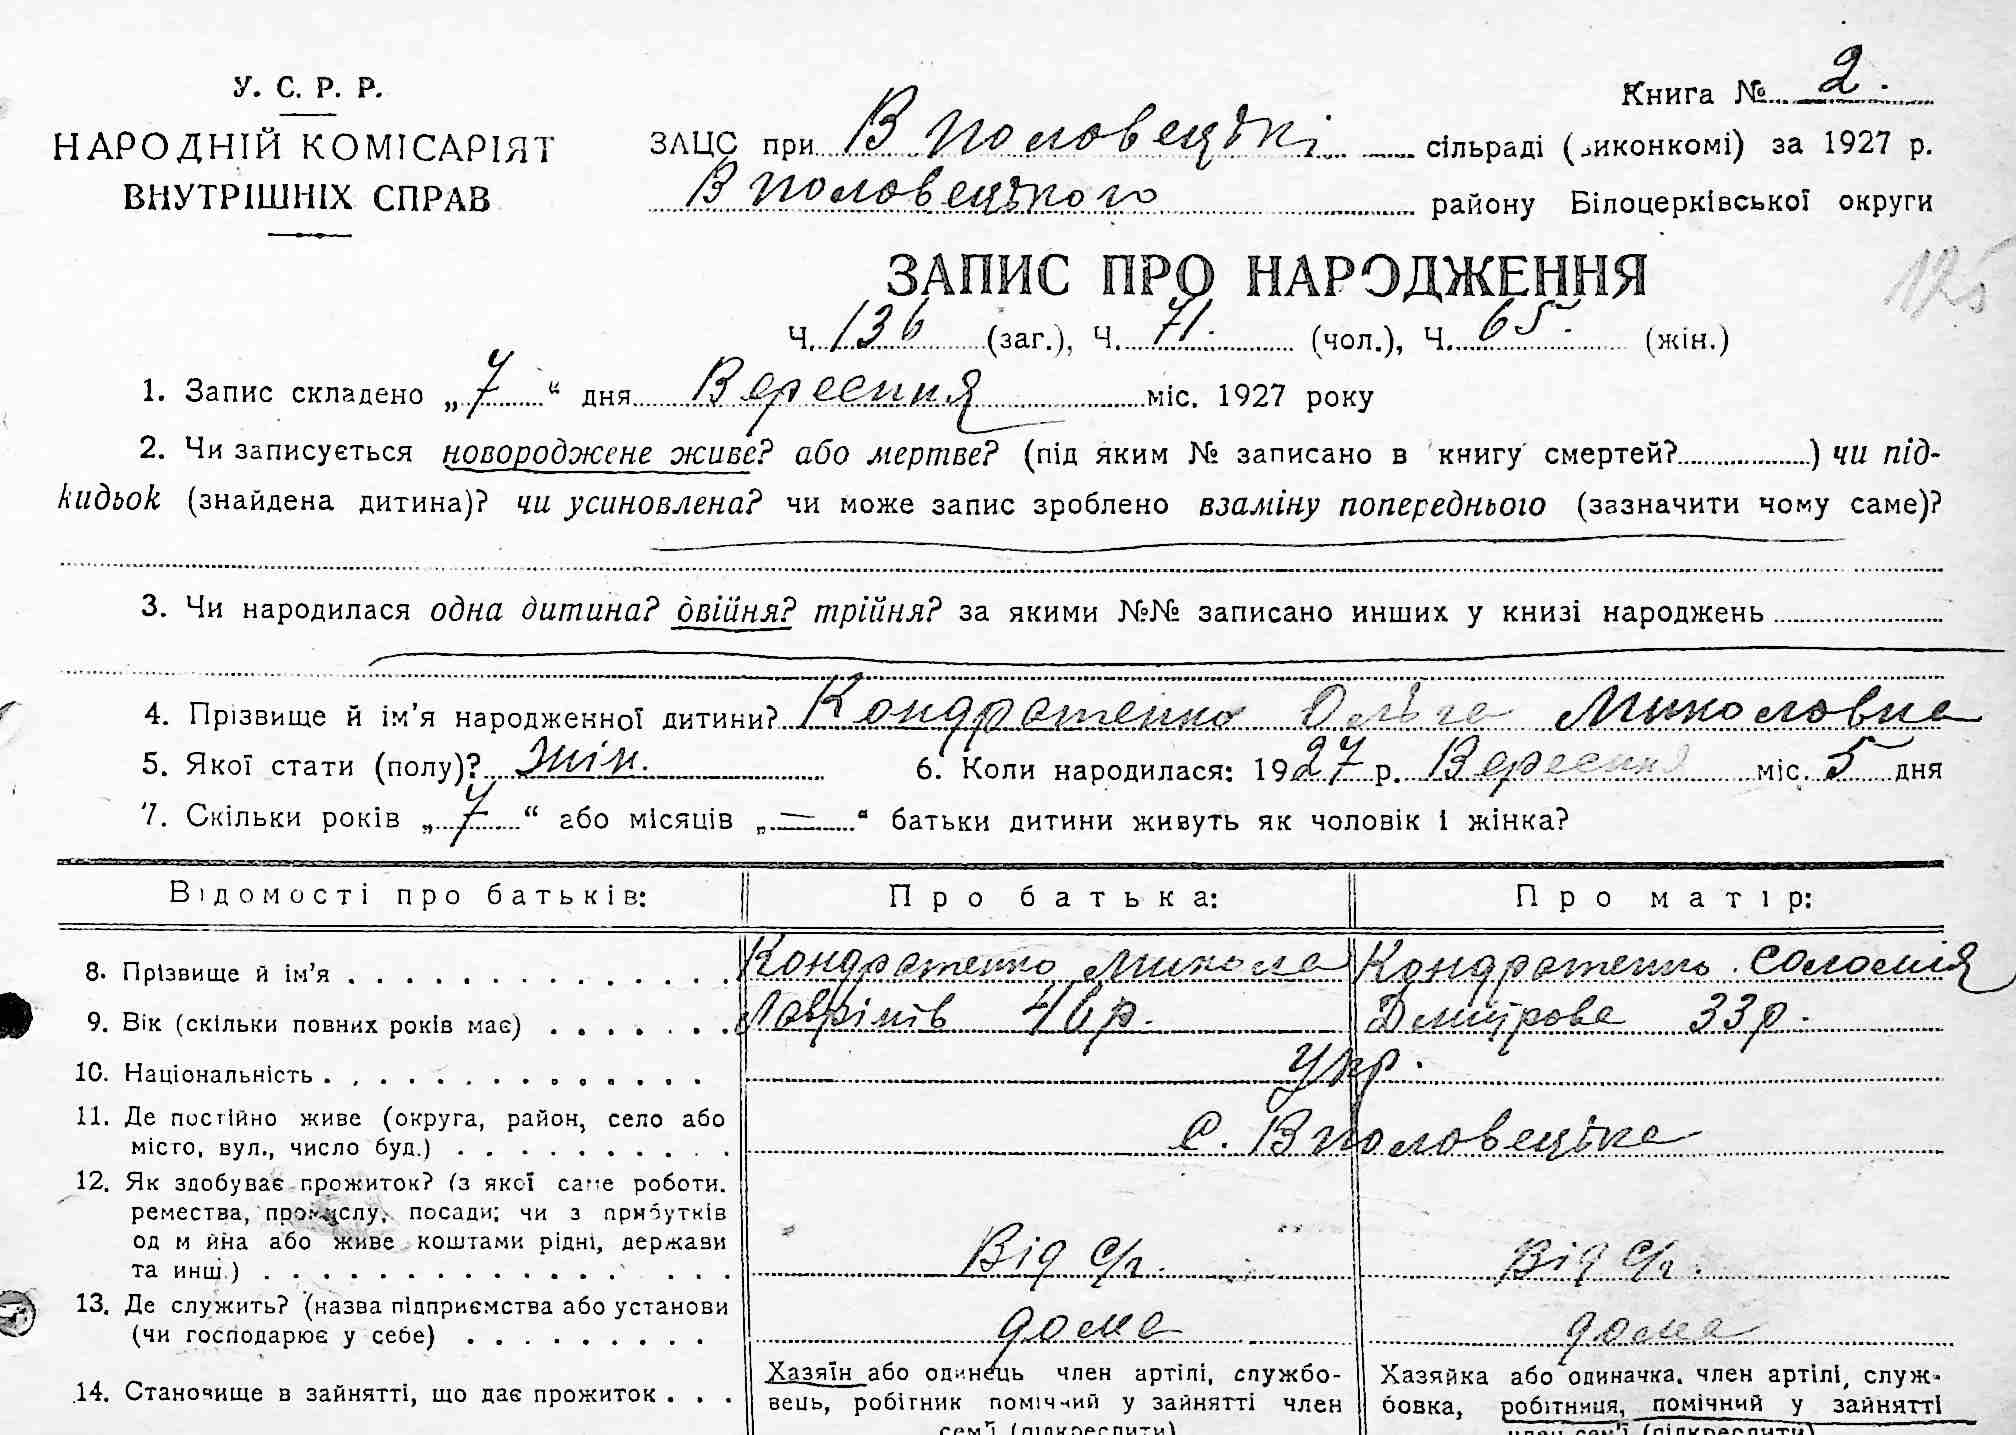 У. С. Р. Р.
НАРОДНІЙ КОМІСАРІЯТ
ВНУТРІШНІХ СПРАВ
Книга № 2.
ЗАЦС при В Половецькі сільраді (виконкомі) за 1927 р.
В Половецького району Білоцерківської округи
125
ЗАПИС ПРО НАРОДЖЕННЯ
Ч. 136 (заг.), Ч. 71. (чол.), Ч. 65. (жін.)
1. Запис складено „7“ дня Вересння міс. 1927 року
2. Чи записується новороджене живе? або мертве? (під яким № записано в книгу смертей?) чи під-
кидьок (знайдена дитина)? чи усиновлена? чи може запис зроблено взаміну попереднього (зазначити чому саме)?
3. Чи народилася одна дитина? двійня? трійня? за якими №№ записано инших у книзі народжень
4. Прізвище й ім’я народженної дитини? Кондратенко Ольга Миколовна
5. Якої стати (полу)? Жін. 6. Коли народилася: 1927 р. Вересння міс. 5 дня
7. Скільки років „7“ або місяців „—“ батьки дитини живуть як чоловік і жінка?
Відомості про батьків: Про батька: Про матір:
8. Прізвище й ім’я Кондратенко Микола Кондратенко Соломія
9. Вік (скільки повних років має) Лаврінів 46 р. Дмитрова 33 р.
10. Національність Укр.
11. Де постійно живе (округа, район, село або
місто, вул., число буд.) с. В Половецька
12. Як здобуває прожиток? (з якої саме роботи,
ремества, промислу, посади; чи з прибутків
од майна або живе коштами рідні, держави
та инш.) Від с/г. Від с/г.
13. Де служить? (назва підприємства або установи
(чи господарює у себе) дома дома
14. Становище в зайнятті, що дає прожиток
Хазяїн або одинець член артілі, службо-
вець, робітник помічний у зайнятті член
сем’ї (підкреслити)
Хазяйка або одиначка, член артілі, служ-
бовка, робітниця, помічний у зайнятті
член сем’ї (підкреслити)